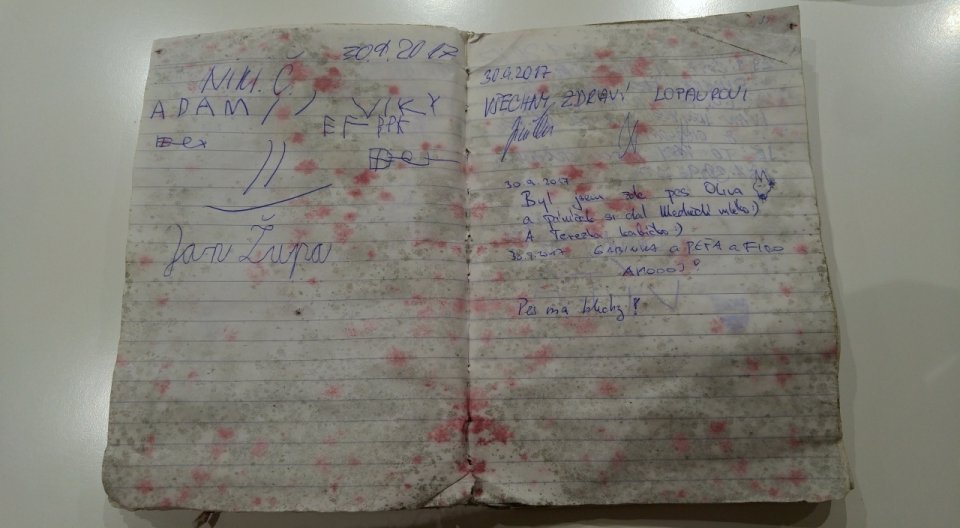 30.9.2017
NIKI. Č
ADAM )) VIKKY
EF PPK
Dex
))
Jan Župa
30.9.2017
VŠECHNY ZDRAVÍ LOPAUROVI
30.9.2017
Byl jsem zde pes Oliva
a páníček si dal mléko:)
A Terezka kabičko:)
30.9.2017 GABINKA a PEŤA a FIDO
AHOOOJ!
Pes má blechy!